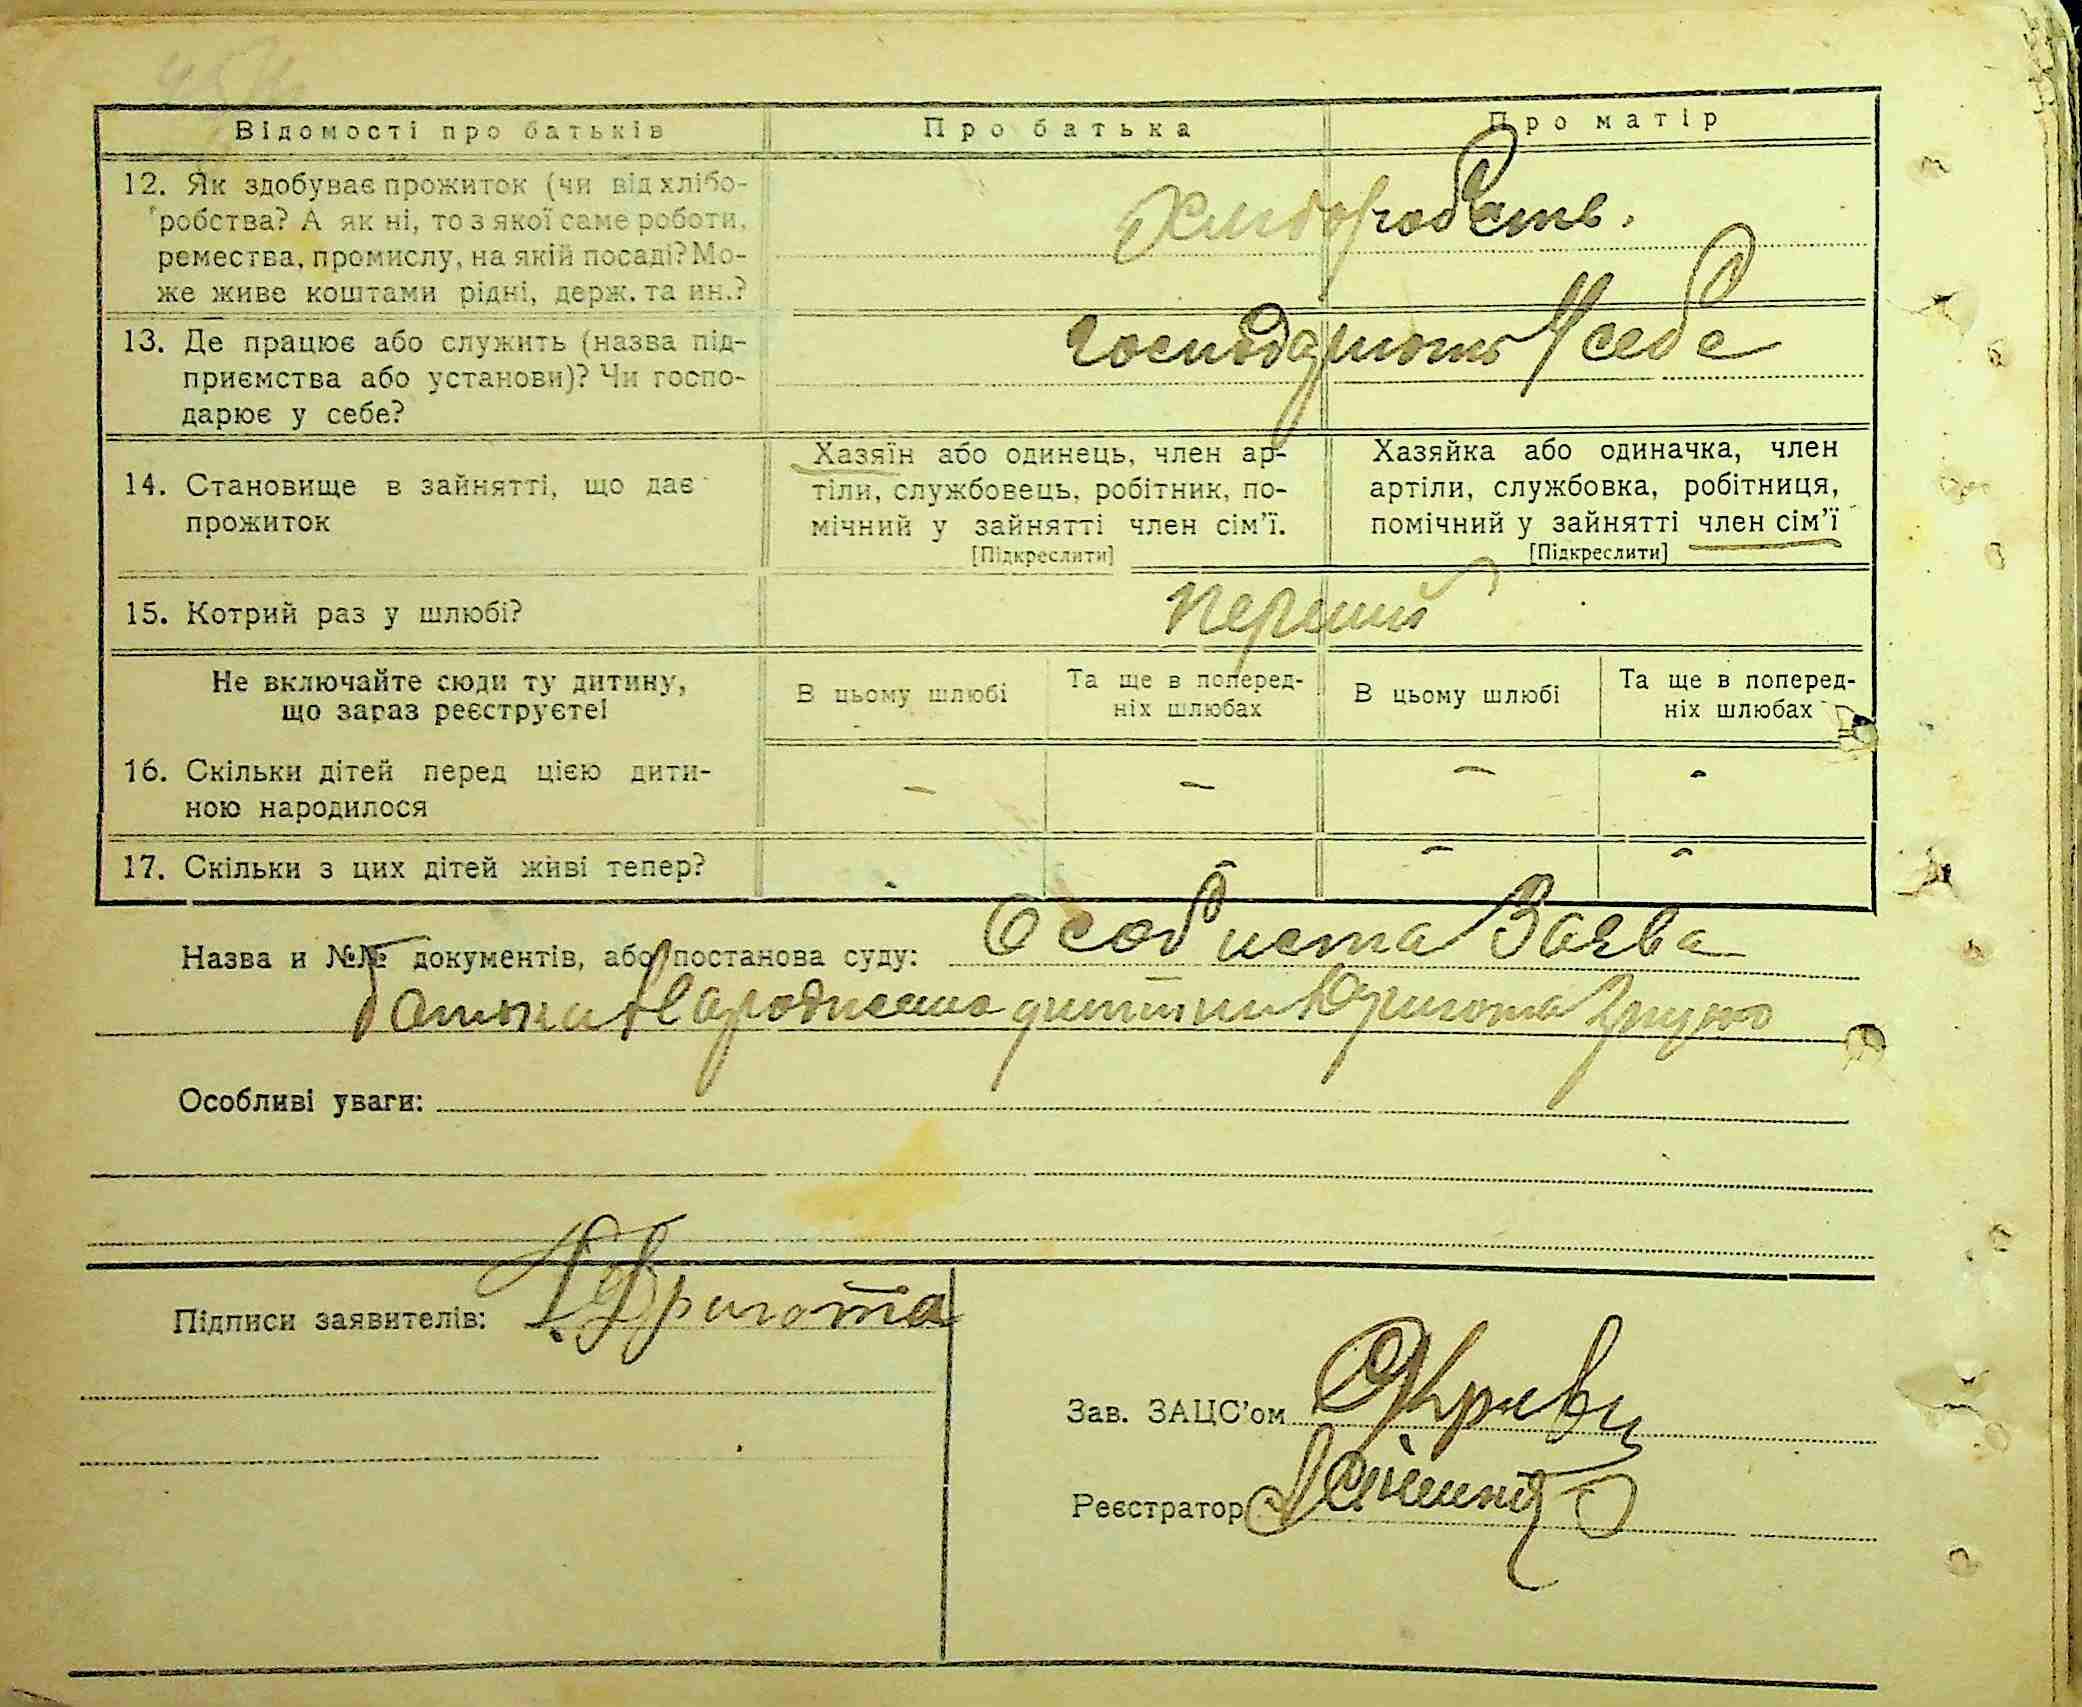 Відомості про батьків Про батька Про матір
12. Як здобуває прожиток (чи від хлібо-
робства? А як ні, то з якої саме роботи,
ремества, промислу, на якій посаді? Мо-
же живе коштами рідні, держ. та ин.?
Хліборобств.
13. Де працює або служить (назва під-
приємства або установи)? Чи госпо-
дарює у себе?
господарюють У себе
14. Становище в зайнятті, що дає
прожиток
Хазяїн або одинець, член ар-
тіли, службовець, робітник, по-
мічний у зайнятті член сім'ї.
[Підкреслити]
Хазяйка або одиначка, член
артіли, службовка, робітниця,
помічний у зайнятті член сім'ї
[Підкреслити]
15. Котрий раз у шлюбі?
перший
Не включайте сюди ту дитину,
що зараз реєструєте!
В цьому шлюбі
Та ще в поперед-
ніх шлюбах
В цьому шлюбі
Та ще в поперед-
ніх шлюбах
16. Скільки дітей перед цією дити-
ною народилося
- - - -
17. Скільки з цих дітей живі тепер?
- - - -
Назва и №№ документів, або постанова суду: Особиста Заява
батька Народиссьло дитини
Особливі уваги:
Підписи заявителів:
Зав. ЗАЦС'ом
Реєстратор